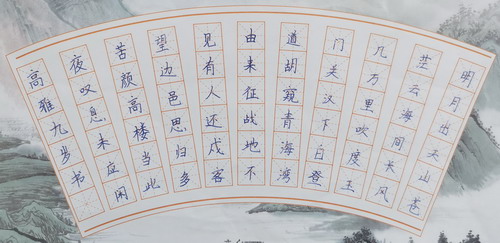 明月出天山苍
茫云海间长风
几万里吹度玉
门关汉下白登
道胡窥青海湾
由来征战地不
见有人还戍客
望边邑思归多
苦颜高楼当此
夜叹息未应闲
高雅九岁书